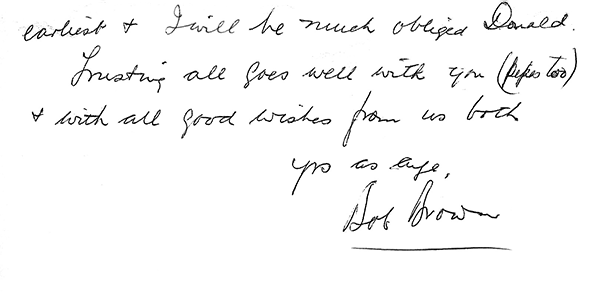 earliest & I will be much obliged Donald.
Trusting all goes well with you (pipes too)
& with all good wishes from us both
yrs as ever,
Bob Brown